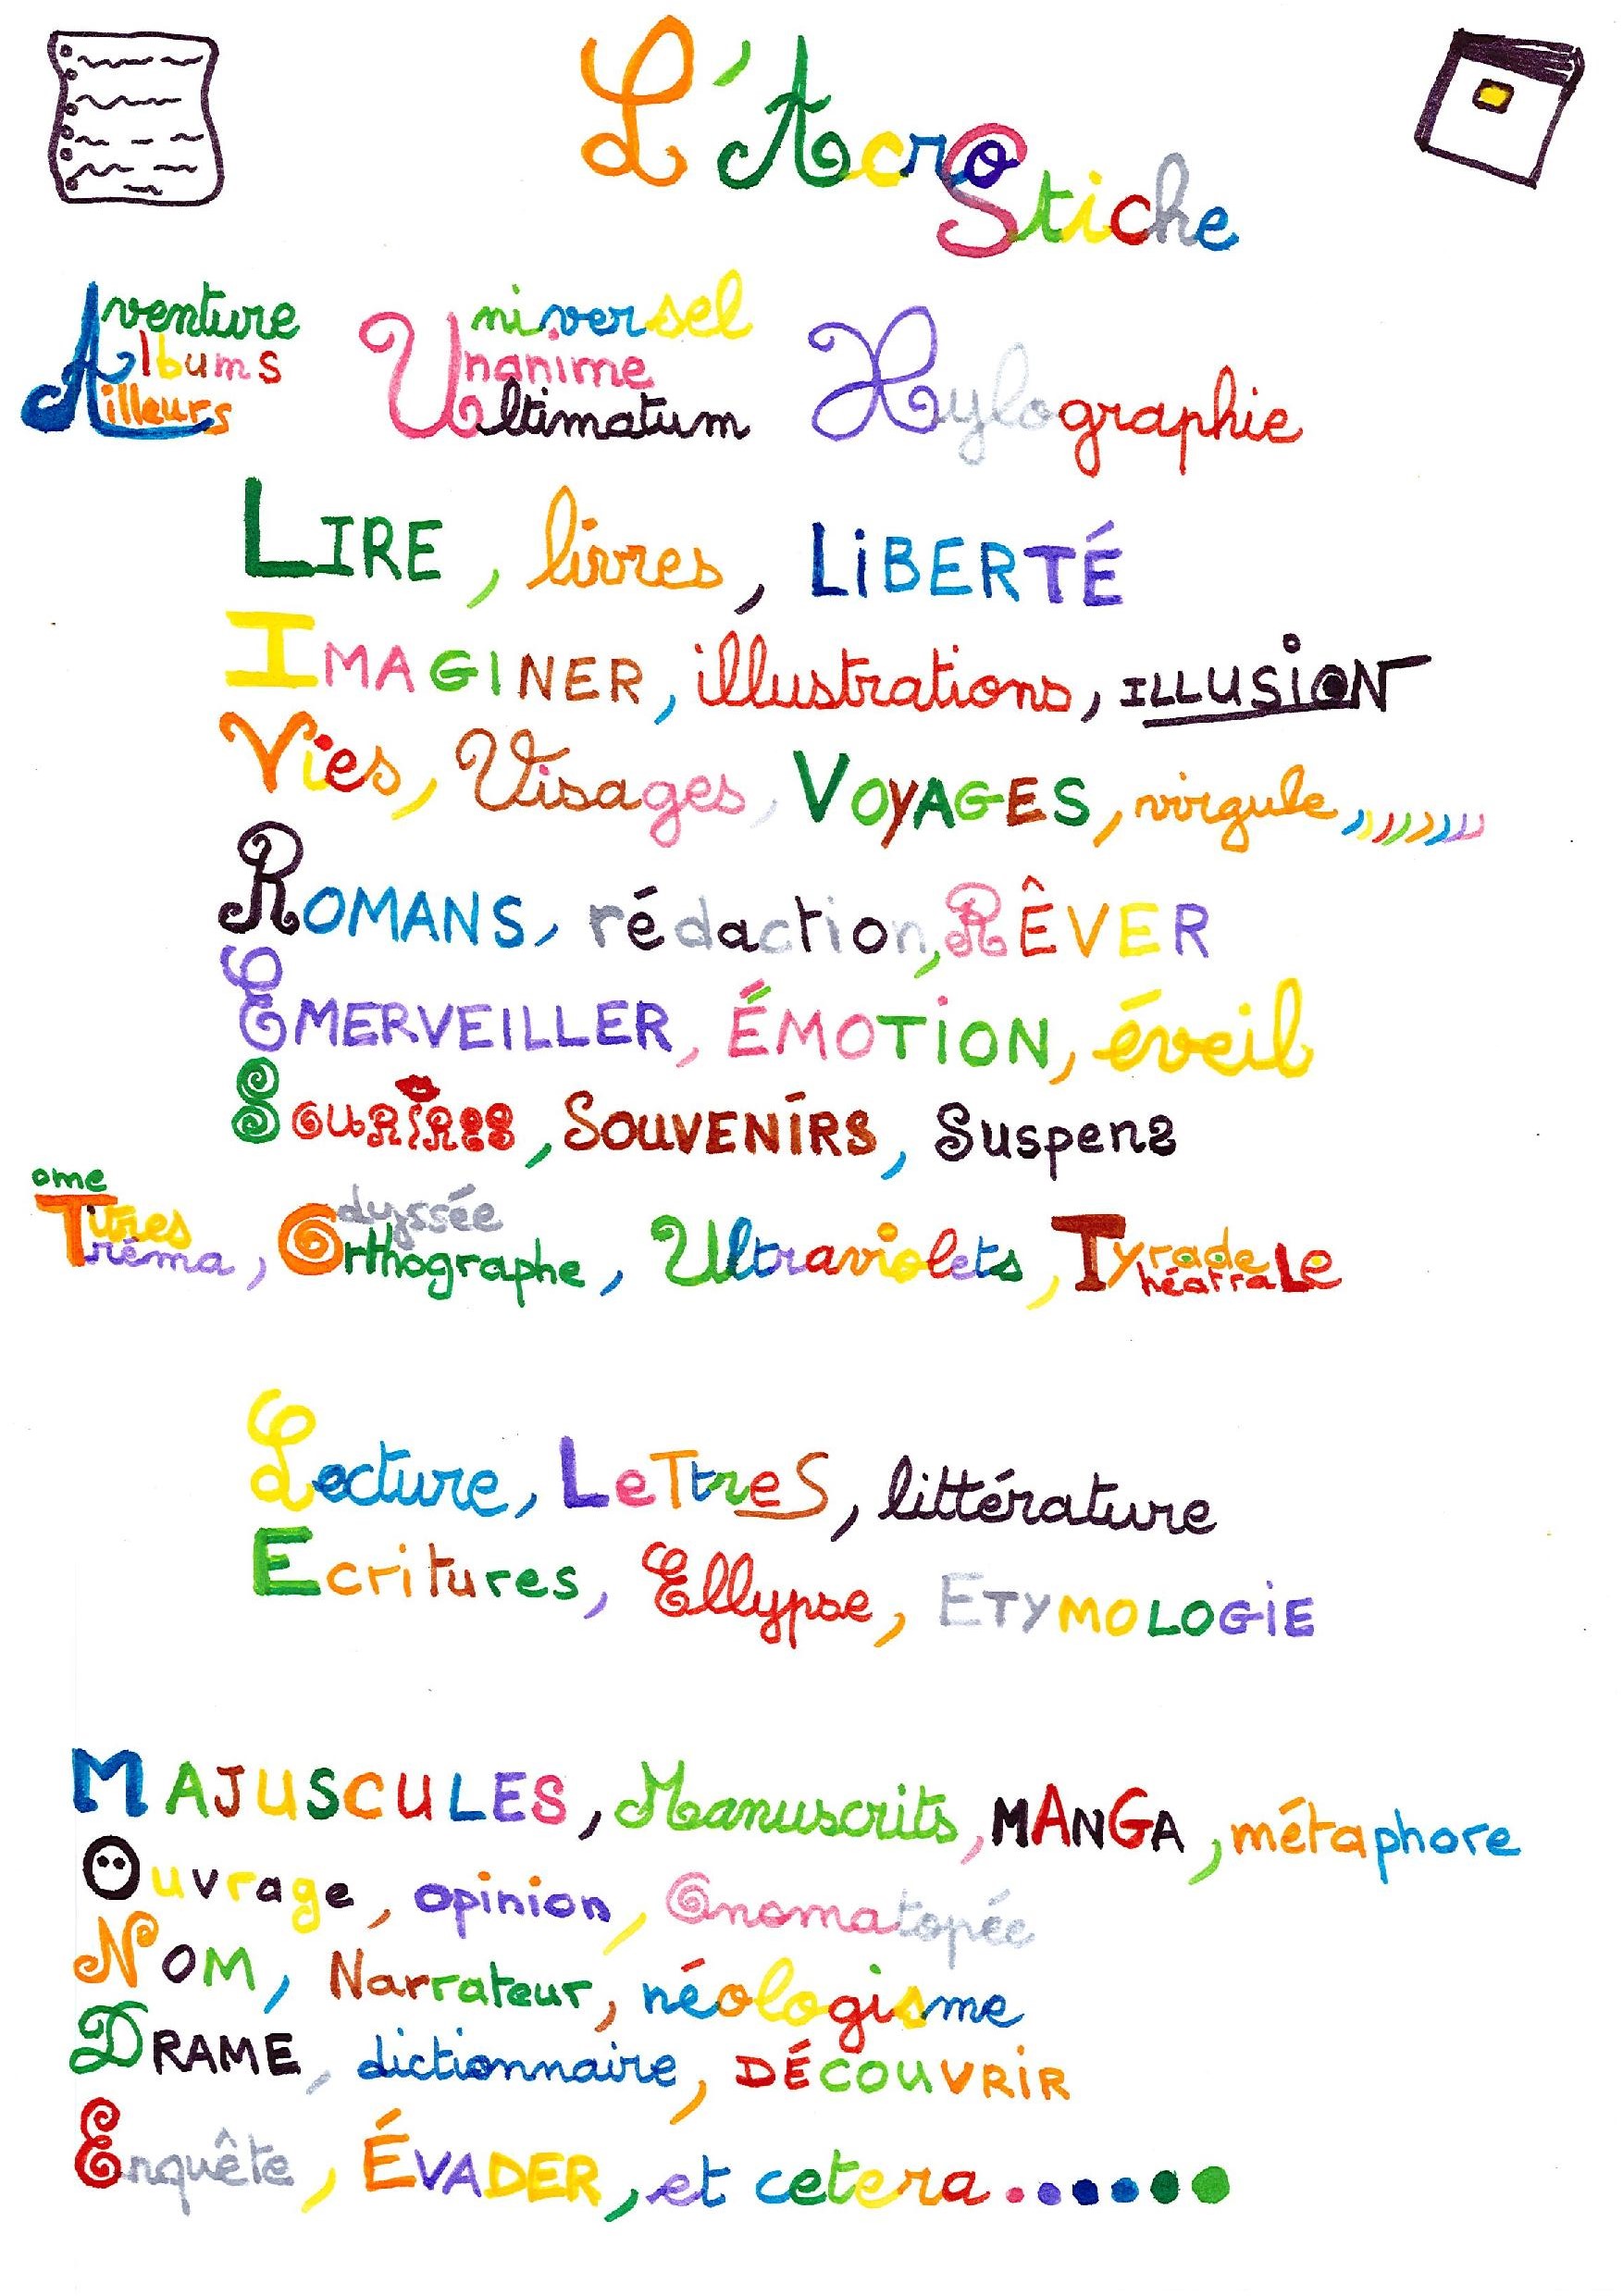 L'AcroStiche
Aventure Universel Xylographie
Albums Unanime
Ailleurs Ultimatum
LIRE, livres, LiBERTÉ
IMAGINER, illustrations, ILLUSiON
Vies, Visages, VOYAGES, virgule,,,,,,,,
ROMANS, rédaction, RÊVER
EMERVEILLER, ÉMOTiON, éveil
SOURIRES, SOUVENIRS, Suspens
Tome Odyssée
Titres Orthographe, Ultraviolets, Tyrade
Tréma, ThéatraLe
Lecture, LeTtreS, littérature
Ecritures, Ellypse, ETYMOLOGiE
MAJUSCULES, Manuscrits, MANGA, métaphore
Ouvrage, opinion, Onomatopée
NOM, Narrateur, néologisme
DRAME, dictionnaire, DÉCOUVRiR
Enquête, ÉVADER, et cetera......